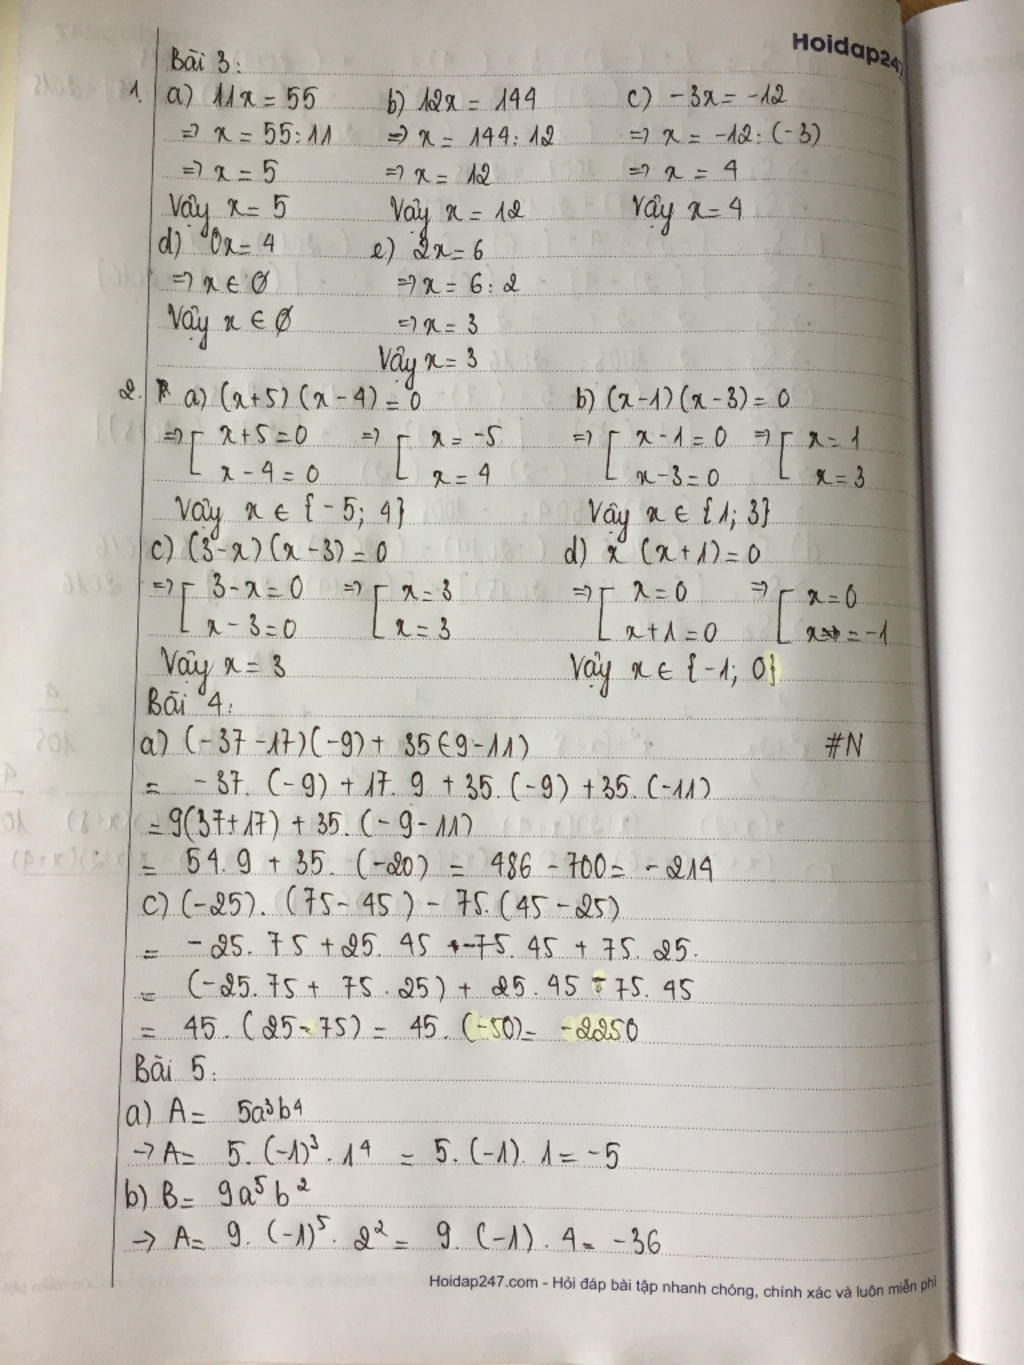 Hoidap247
Bài 3:
1. a) 11x = 55 b) 12x = 144 c) -3x = -12
=> x = 55:11 => x = 144:12 => x = -12:(-3)
=> x = 5 => x = 12 => x = 4
Vậy x = 5 Vậy x = 12 Vậy x = 4
d) 0x = 4 e) 2x = 6
=> x ∈ ∅ => x = 6:2
Vậy x ∈ ∅ => x = 3
Vậy x = 3
2. a) (x+5)(x-4) = 0 b) (x-1)(x-3) = 0
=> [ x+5 = 0 => [ x = -5 => [ x-1 = 0 => [ x = 1
x-4 = 0 x = 4 x-3 = 0 x = 3
Vậy x ∈ {-5; 4} Vậy x ∈ {1; 3}
c) (3-x)(x-3) = 0 d) x (x+1) = 0
=> [ 3-x = 0 => [ x = 3 => [ x = 0 => [ x = 0
x-3 = 0 x = 3 x+1 = 0 x = -1
Vậy x = 3 Vậy x ∈ {-1; 0}
Bài 4:
a) (-37-17)(-9) + 35(-9-11) #N
= -37.(-9) + 17.9 + 35.(-9) + 35.(-11)
= 9(37+17) + 35.(-9-11)
= 54.9 + 35.(-20) = 486 - 700 = -214
c) (-25).(75-45) - 75.(45-25)
= -25.75 + 25.45 - 75.45 + 75.25.
= (-25.75 + 75.25) + 25.45 - 75.45
= 45.(25-75) = 45.(-50) = -2250
Bài 5:
a) A = 5a³b⁴
-> A = 5.(-1)³.1⁴ = 5.(-1).1 = -5
b) B = 9a⁵b²
-> A = 9.(-1)⁵.2² = 9.(-1).4 = -36
Hoidap247.com - Hỏi đáp bài tập nhanh chóng, chính xác và luôn miễn phí